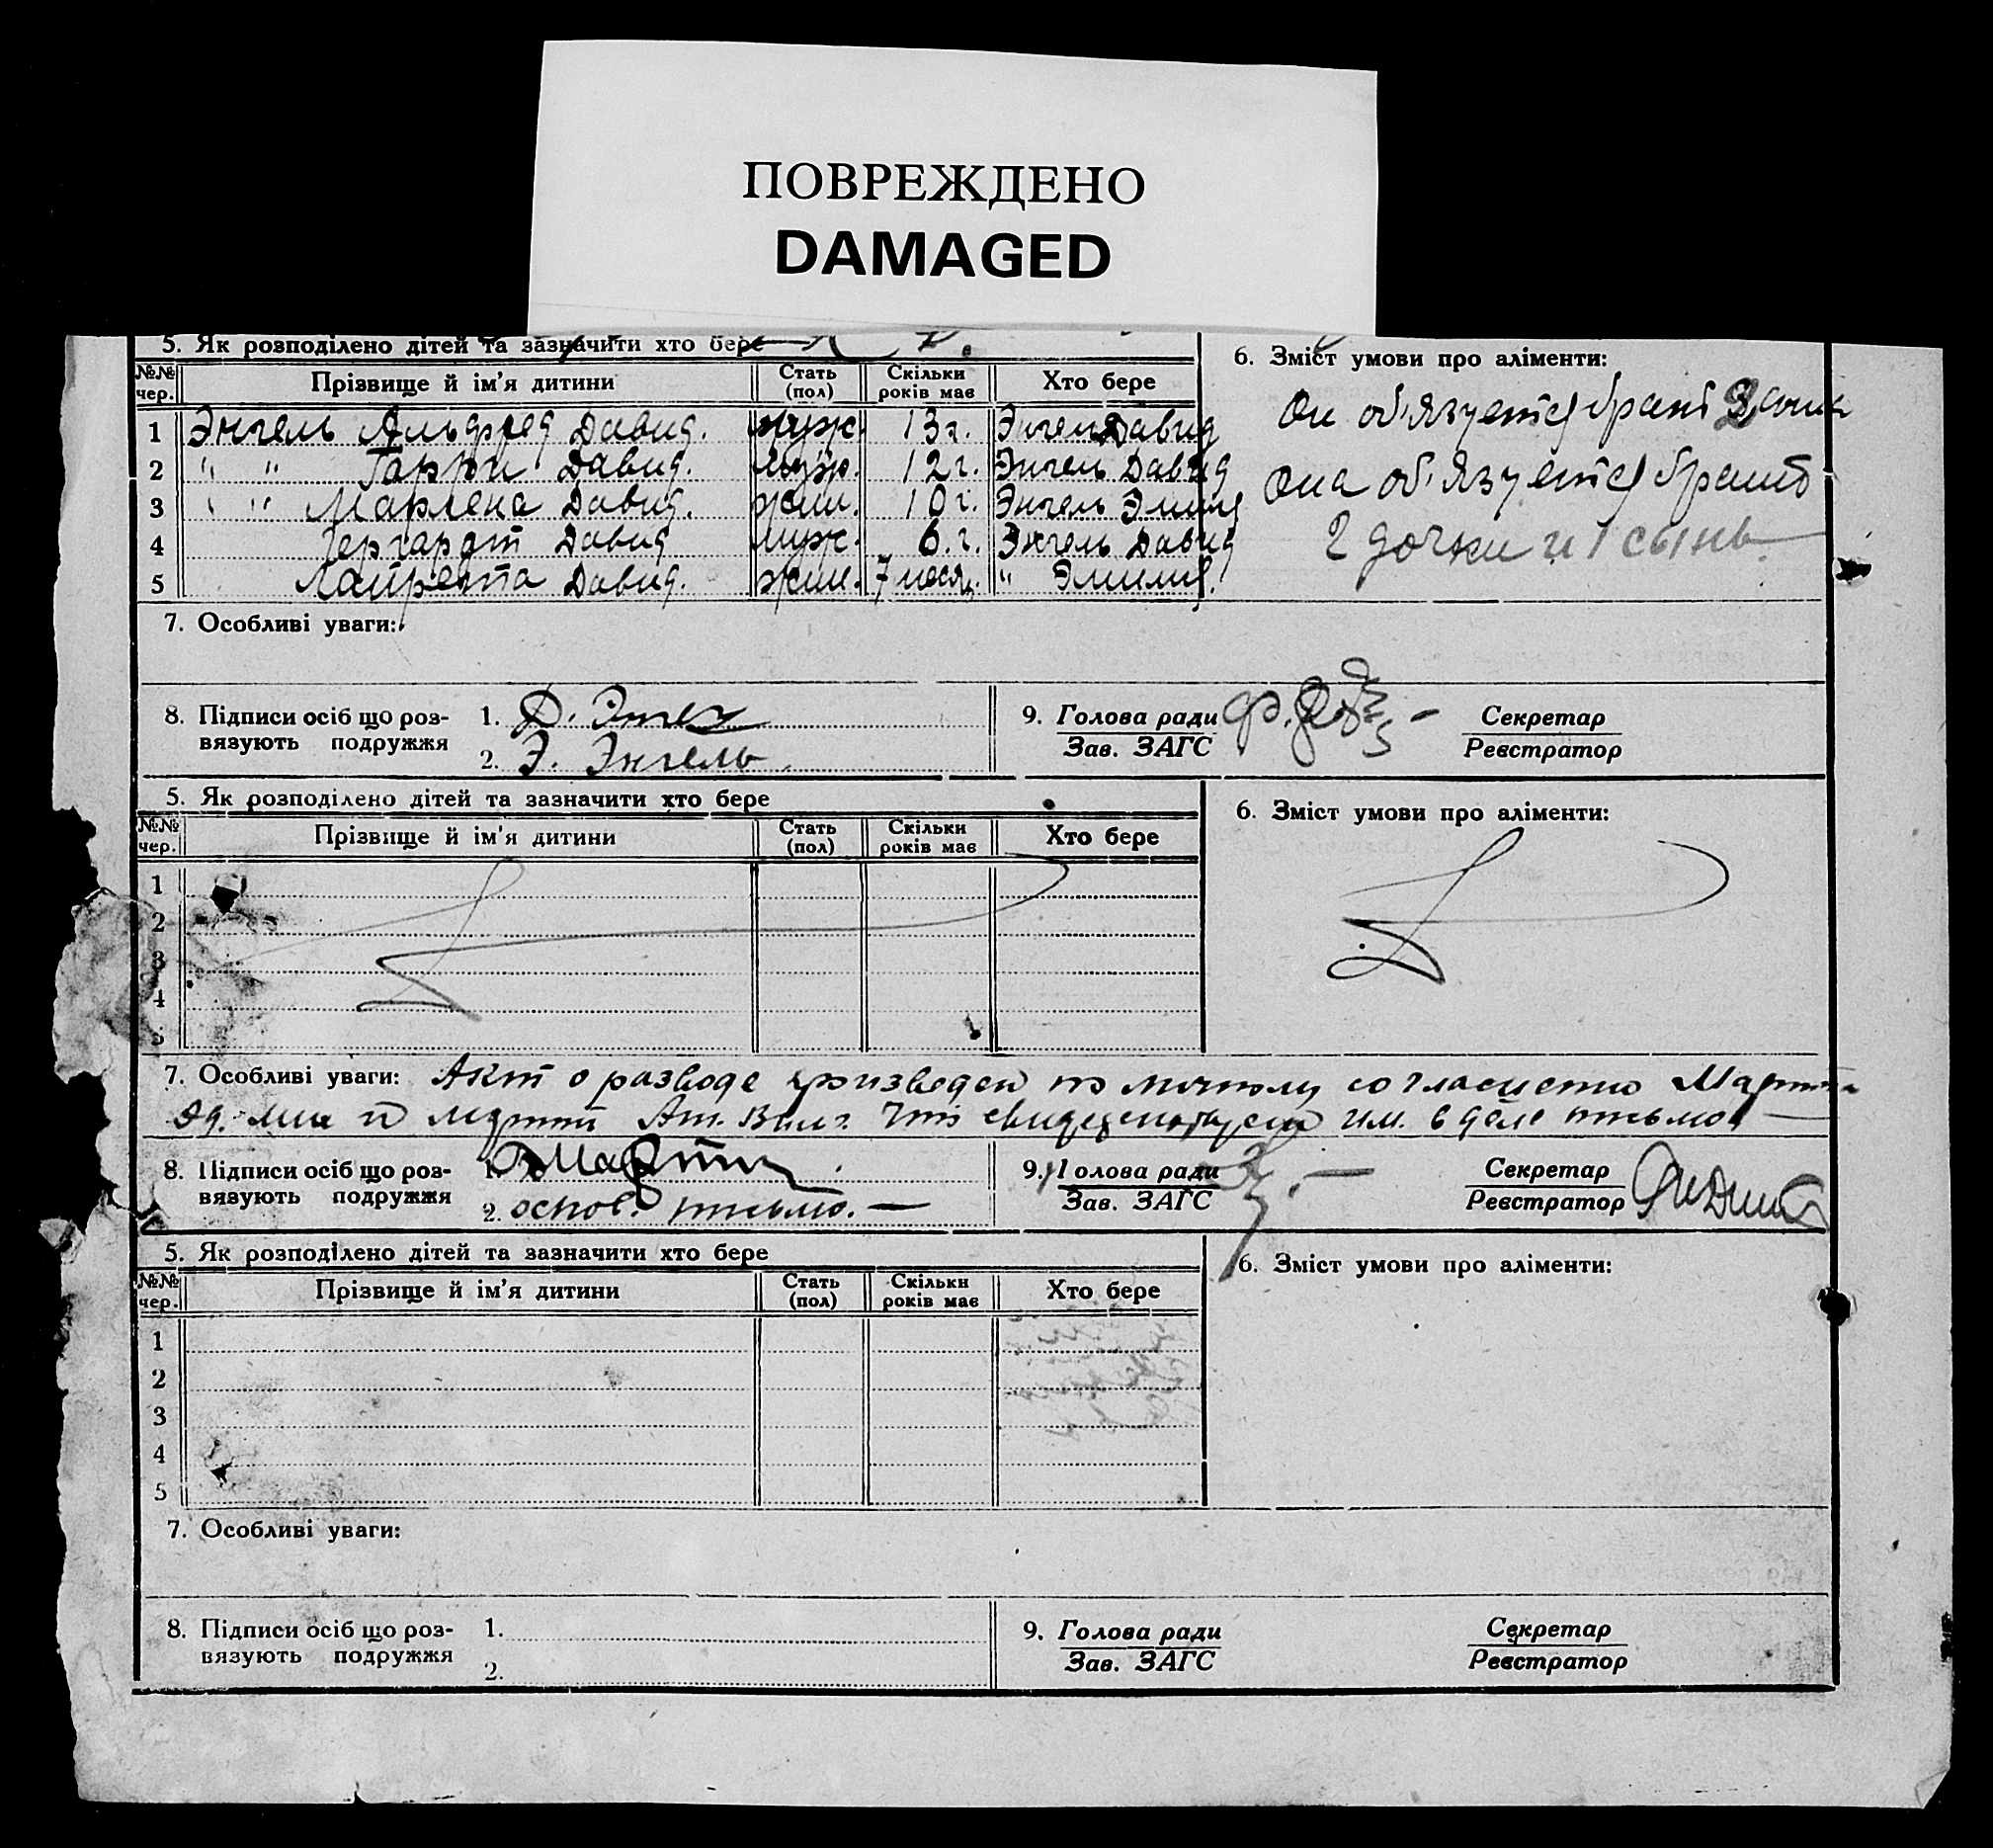 ПОВРЕЖДЕНО
DAMAGED
5. Як розподілено дітей та зазначити хто бере
6. Зміст умови про аліменти:
№№ чер. Прізвище й ім'я дитини Стать (пол) Скільки років має Хто бере
1 Энгель Альфред Давид. муж. 13 г. Энгель Давид
2 " " Гарри Давид. муж. 12 г. Энгель Давид
3 " " Марлена Давид. жин. 10 г. Энгель Эмиля
4 Гергардт Давид муж. 6. г. Энгель Давид
5 Лауретта Давид. жин. 7 месяц. " Эмилия.
Он об'язуется брат
Она об'язуется брать
2 дочки и 1 сынь
7. Особливі уваги:
8. Підписи осіб що роз-
вязують подружжя
1. Д. Энгел
2. Э. Энгель.
9. Голова ради
Зав. ЗАГС
Секретар
Реєстратор
5. Як розподілено дітей та зазначити хто бере
6. Зміст умови про аліменти:
№№ чер. Прізвище й ім'я дитини Стать (пол) Скільки років має Хто бере
1
2
3
4
5
7. Особливі уваги: Акт о разводе произведен по согласию Мартин
Эд. и Март Ан. Вилг. что им. в деле письмо
8. Підписи осіб що роз-
вязують подружжя
1. Мартин
2. основ. письмо. —
9. Голова ради
Зав. ЗАГС
Секретар
Реєстратор
5. Як розподілено дітей та зазначити хто бере
6. Зміст умови про аліменти:
№№ чер. Прізвище й ім'я дитини Стать (пол) Скільки років має Хто бере
1
2
3
4
5
7. Особливі уваги:
8. Підписи осіб що роз-
вязують подружжя
1.
2.
9. Голова ради
Зав. ЗАГС
Секретар
Реєстратор